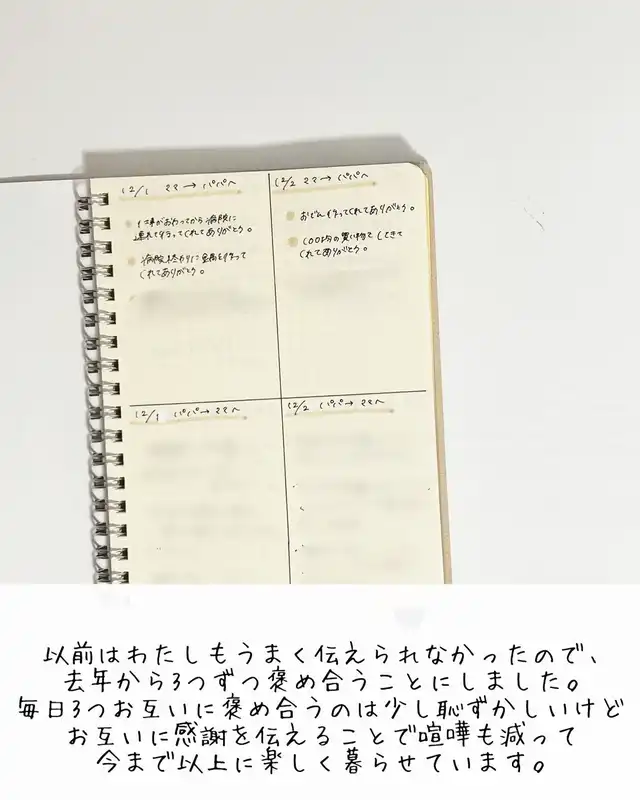 12/1 ママ→パパへ
仕事がおわってから海殿に
連れて行ってくれてありがとう。
くれてありがとう。
12/2 ママ→パパへ
おでん作ってくれてありがとう。
100均の買い物できて
くれてありがとう。
12/1 パパ→ママへ
12/2 パパ→ママへ
以前はわたしもうまく伝えられなかったので、
去年から3つずつ褒め合うことにしました。
毎日3つお互いに褒め合うのは少し恥ずかしいけど
お互いに感謝を伝えることで喧嘩も減って
今まで以上に楽しく暮らせています。